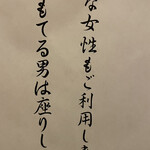 な女性もご利用しま
もてる男は座りし